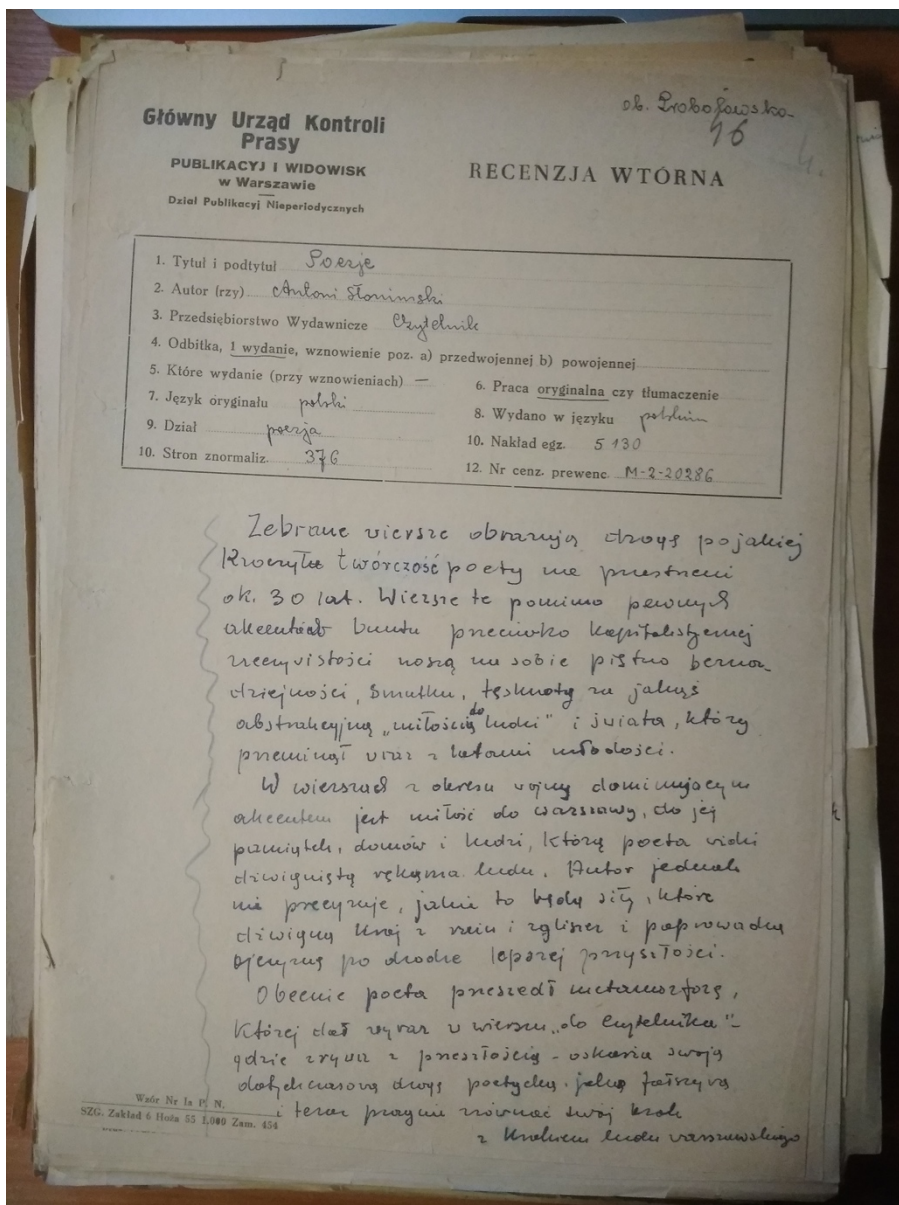 ob. Probołowska
46
4.
Główny Urząd Kontroli
Prasy
PUBLIKACYJ I WIDOWISK
w Warszawie
Dział Publikacyj Nieperiodycznych
RECENZJA WTÓRNA
1. Tytuł i podtytuł Poezje
2. Autor (rzy) Antoni Słonimski
3. Przedsiębiorstwo Wydawnicze Czytelnik
4. Odbitka, 1 wydanie, wznowienie poz. a) przedwojennej b) powojennej
5. Które wydanie (przy wznowieniach) —
6. Praca oryginalna czy tłumaczenie
7. Język oryginału polski
8. Wydano w języku polskim
9. Dział poezja
10. Nakład egz. 5 130
10. Stron znormaliz. 376
12. Nr cenz. prewenc. M-2-20286
Zebrane wiersze obrazują drogę po jakiej
kroczyła twórczość poety na przestrzeni
ok. 30 lat. Wiersze te pomimo pewnych
akcentów buntu przeciwko kapitalistycznej
rzeczywistości noszą na sobie piętno bezna-
dziejności, smutku, tęsknoty za jakąś
abstrakcyjną „miłością do ludzi" i świata, który
przeminął wraz z latami młodości.
W wierszach z okresu wojny dominującym
akcentem jest miłość do Warszawy, do jej
pamiątek, domów i ludzi, którą poeta widzi
dźwigniętą rękoma ludu. Autor jednak
nie precyzuje, jakie to będą siły, które
dźwigną kraj z ruin i zgliszcz i poprowadzą
ojczyznę po drodze lepszej przyszłości.
Obecnie poeta przeszedł metamorfozę,
której dał wyraz w wierszu „do Czytelnika" -
gdzie zrywa z przeszłością - oskarża swoją
dotychczasową drogę poetycką, jako fałszywą
i teraz pragnie zrównać swój krok
z krokiem ludu warszawskiego
Wzór Nr Ia P. N.
SZG. Zakład 6 Hoża 55 1,000 Zam. 454